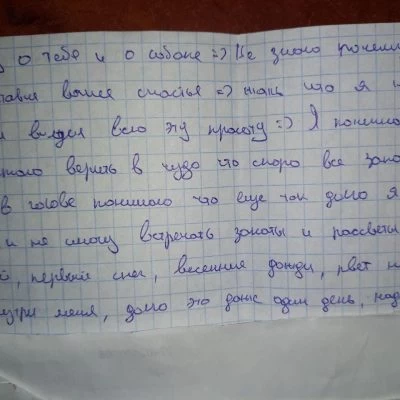 о тебе и о собаке =) Не знаю почему
ваше счастье =) жаль что я н
видел всю эту красоту =) Я понимаю
верить в чудо что скоро все зако
в голове понимаю что еще так долго я
и не смогу встречать закаты и рассветы
, первый снег, весенние дожди, рвет н
утри меня, долго это даже один день, над